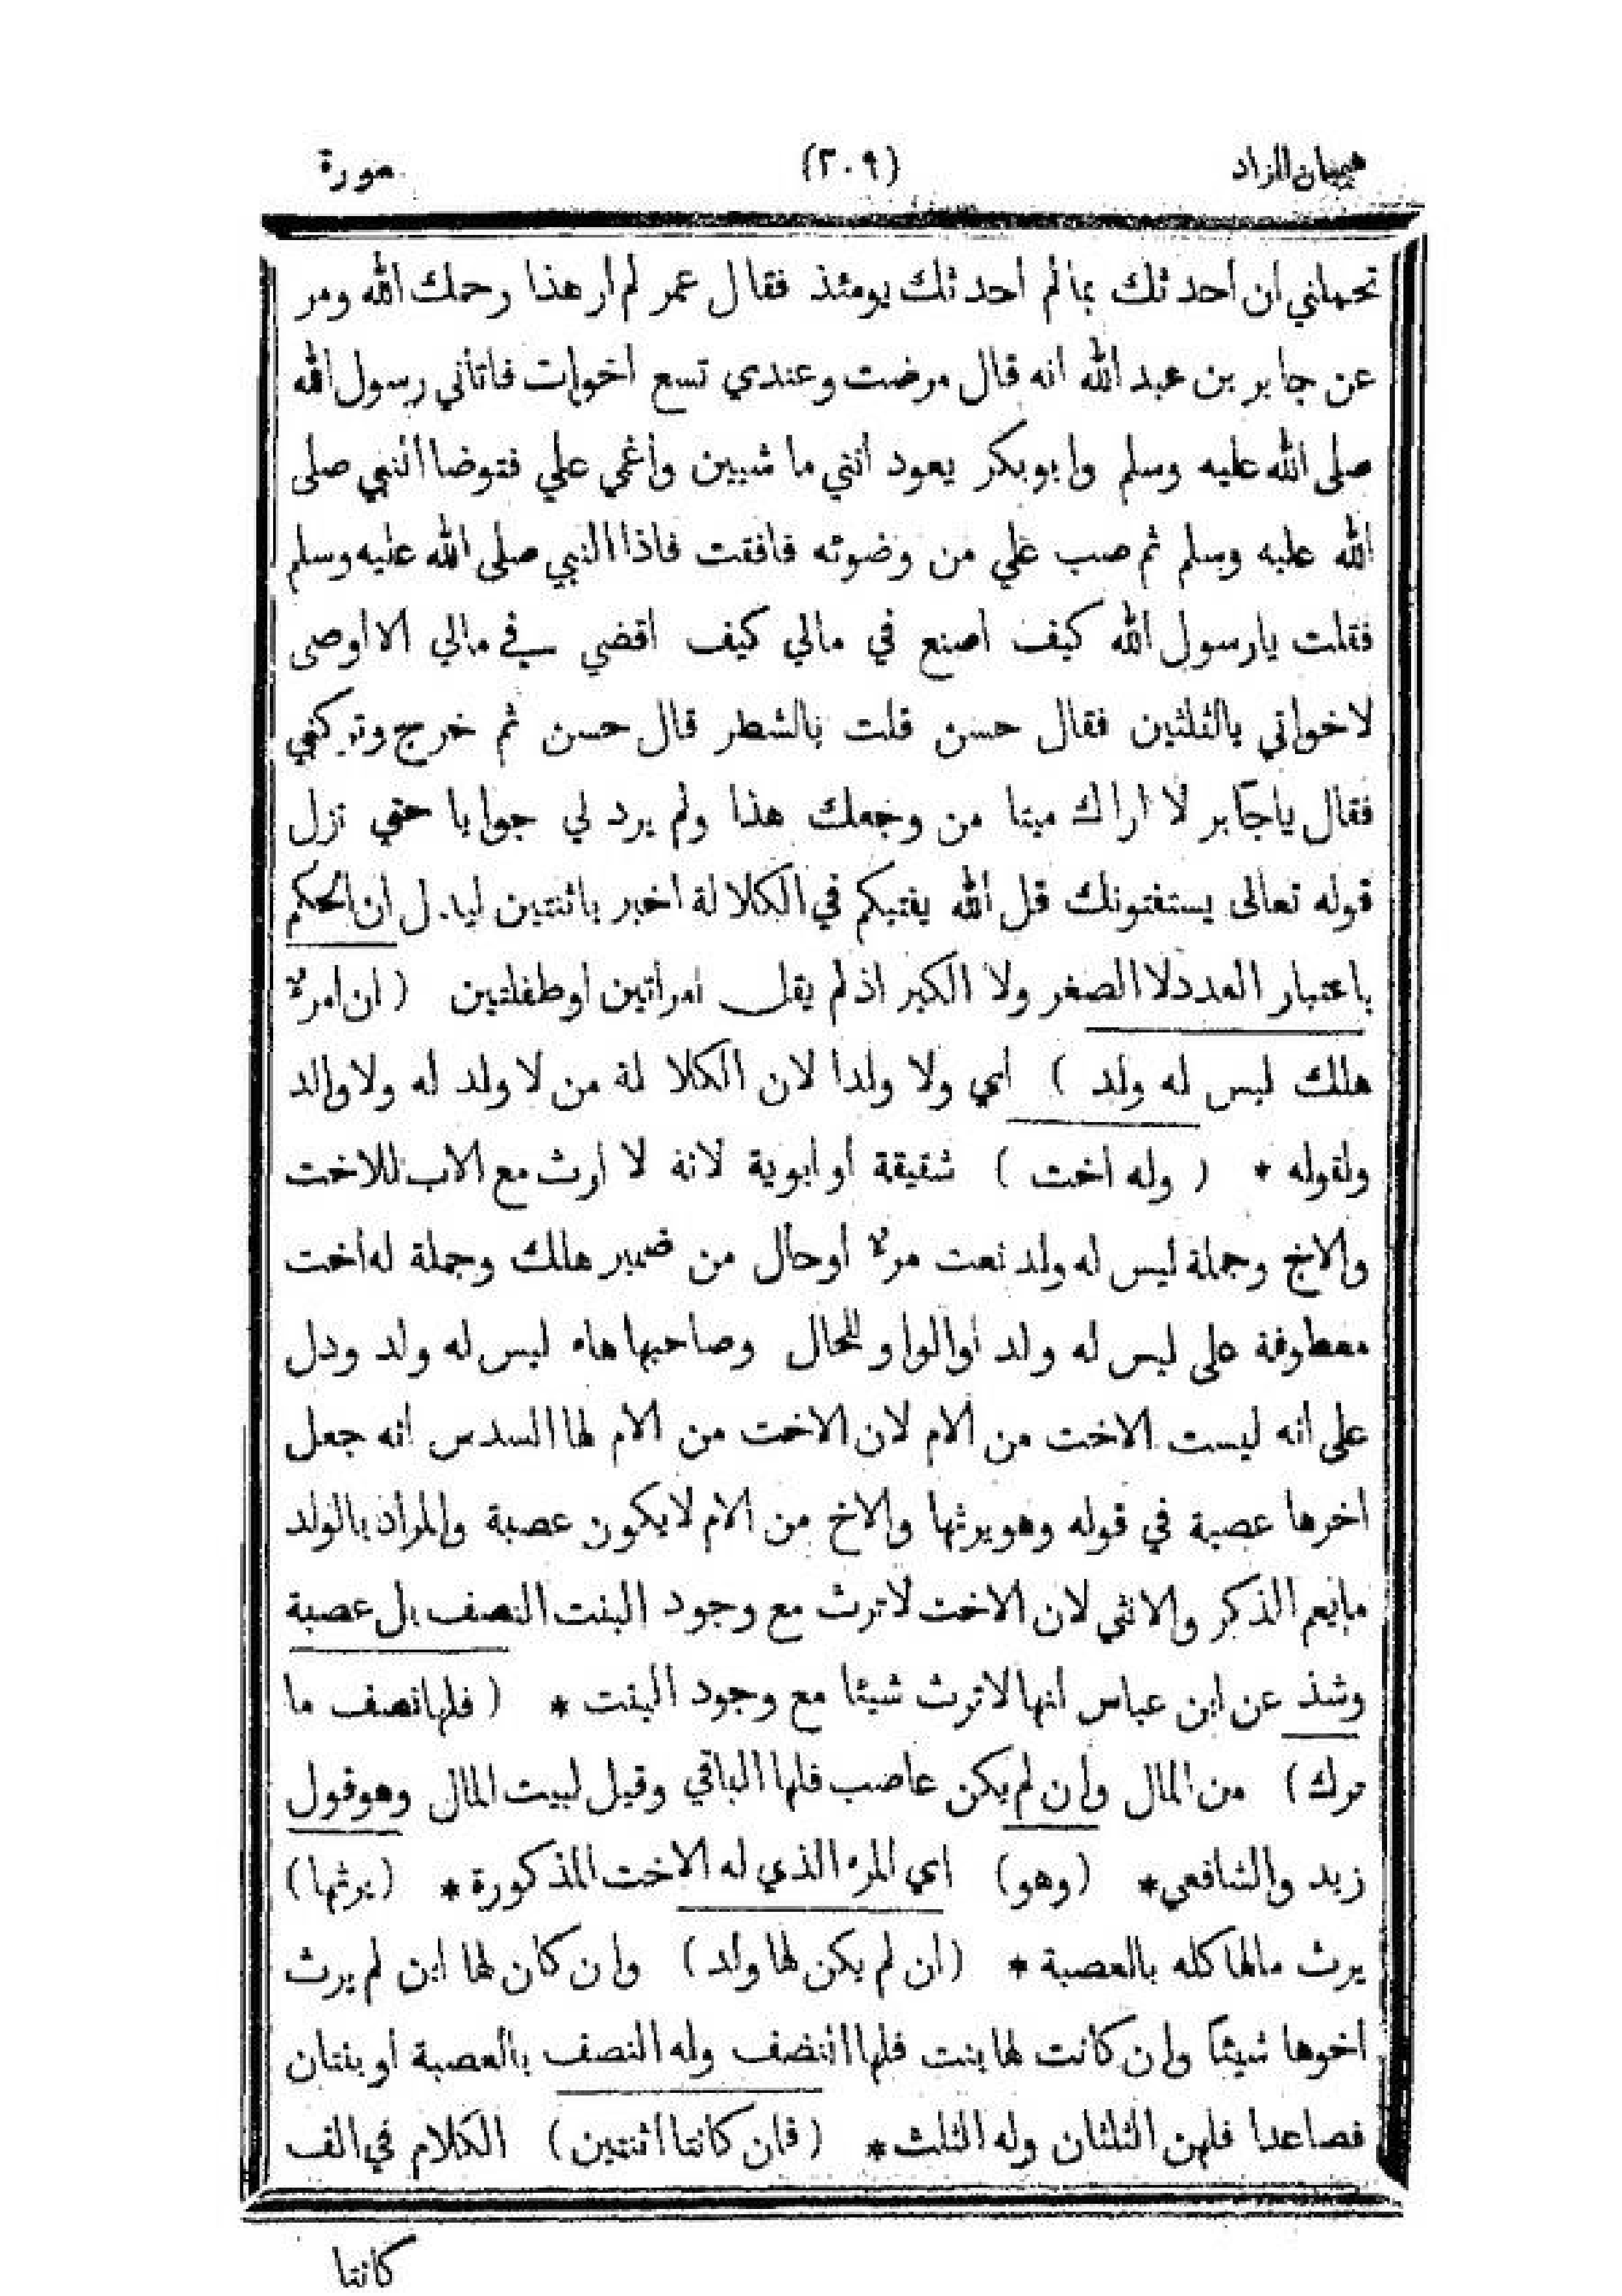 هميان الزاد (٢٠٩) سورة
تحملني ان أحدثك بما لم أحدثك يومئذ فقال عمر لم أر هذا رحمك الله ومر
عن جابر بن عبد الله انه قال مرضت وعندي تسع اخوات فاتاني رسول الله
صلى الله عليه وسلم وابو بكر يعود انني ما شيين واغمي علي فتوضا النبي صلى
الله عليه وسلم ثم صب علي من وضوئه فافقت فاذا النبي صلى الله عليه وسلم
فقلت يا رسول الله كيف اصنع في مالي كيف اقضي في مالي الا اوصى
لاخواتي بالثلثين فقال حسن قلت بالشطر قال حسن ثم خرج وتركني
فقال ياجابر لا اراك ميتا من وجعك هذا ولم يرد لي جوابا حتي نزل
قوله تعالى يستفتونك قل الله يفتيكم في الكلالة اخبر باثنتين ليدل ان الحكم
باعتبار العدد لا الصغر ولا الكبر اذ لم يقل امرأتين او طفلتين ( ان امرؤ
هلك ليس له ولد ) أي ولا ولدا لان الكلا لة من لا ولد له ولا والد
ولقوله * ( وله أخت ) شقيقة او ابوية لانه لا ارث مع الاب للاخت
والاخ وجملة ليس له ولد نعت مرؤ اوحال من ضمير هلك وجملة له أخت
معطوفة على ليس له ولد أو الواو للحال وصاحبها هاء ليس له ولد ودل
على أنه ليست الاخت من الام لان الاخت من الام لها السدس انه جعل
اخرها عصبة في قوله وهو يرثها والاخ من الام لا يكون عصبة والمراد بالولد
ما يعم الذكر والانثى لان الاخت لا ترث مع وجود البنت النصف بل عصبة
وشذ عن ابن عباس انها لا ترث شيئا مع وجود البنت * ( فلها نصف ما
ترك ) من المال وان لم يكن عاصب فلها الباقي وقيل لبيت المال وهو قول
زيد والشافعي * (وهو) اي المرء الذي له الاخت المذكورة * (يرثها)
يرث مالها كله بالعصبة * (ان لم يكن لها ولد) وان كان لها ابن لم يرث
اخوها شيئا وان كانت لها بنت فلها النصف وله النصف بالعصبة او بنتان
فصاعدا فلهن الثلثان وله الثلث * (فان كانتا اثنتين) الكلام في الف
كانتا